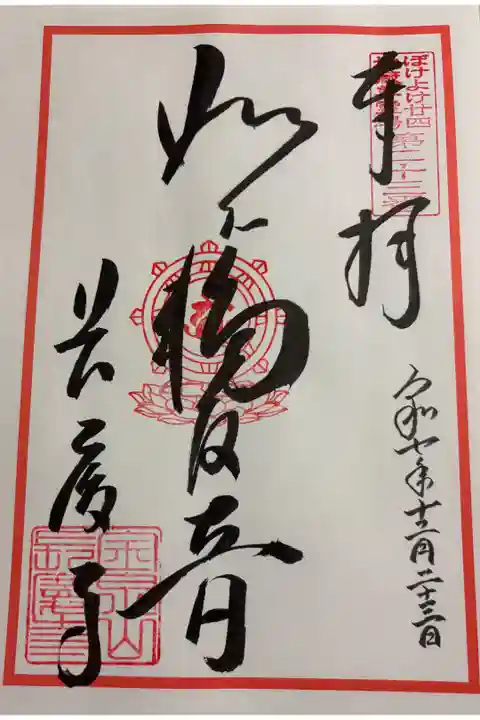 ぼけよけ廿四
第二十三番
奉拝
令和七年十二月二十三日
如意輪観音
長慶寺